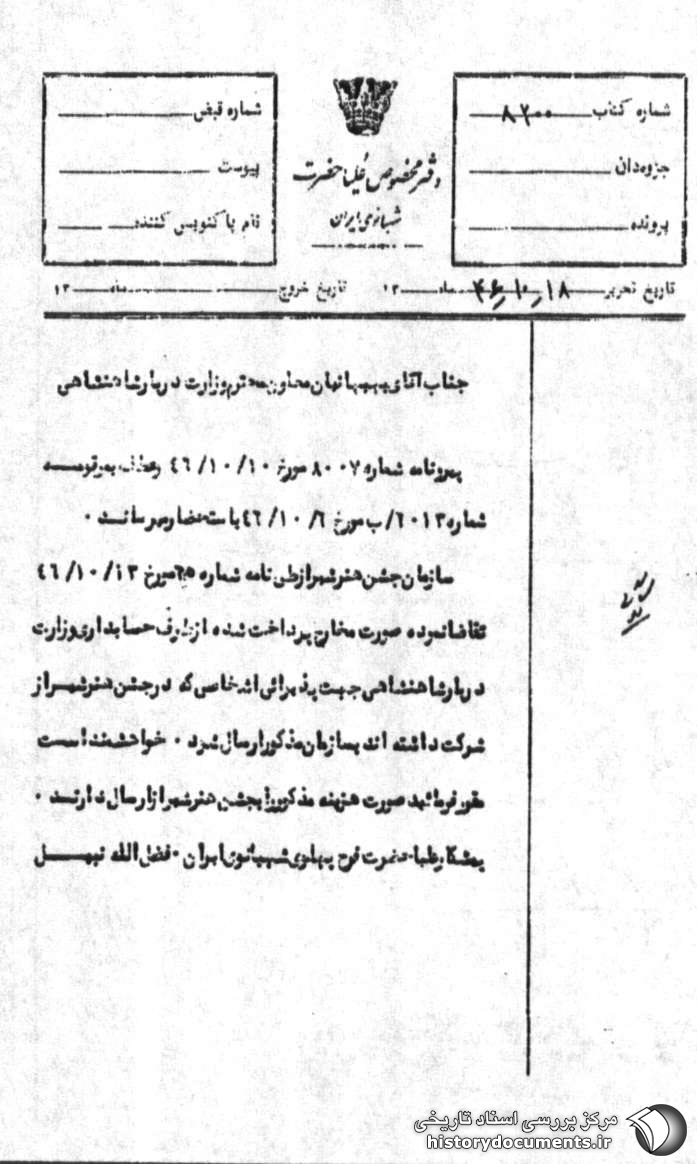 شماره کتاب ۸۲۰۰
جزوه‌دان
پرونده
دفتر مخصوص علیاحضرت
شهبانوی ایران
شماره قبض
پیوست
نام پاکنویس کننده
تاریخ تحریر ۱۸ ر ۱۰ ر ۴۶ ماه ۱۳
تاریخ خروج ماه ۱۳
جناب آقای بهبهانیان معاون محترم وزارت دربار شاهنشاهی
پیرو نامه شماره ۸۰۰۷ مورخ ۴۶/۱۰/۱۰ و عطف به رقیمه
شماره ۶۰۱۳/ب مورخ ۴۶/۱۰/۶ باستحضار میرساند ۰
سازمان جشن هنر شیراز طی نامه شماره مورخ ۴۶/۱۰/۱۳
تقاضا نموده صورت مخارج پرداخت شده از طرف حسابداری وزارت
دربار شاهنشاهی جهت پذیرائی اشخاصی که در جشن هنر شیراز
شرکت داشته اند بسازمان مذکور ارسال شود ۰ خواهشمند است
مقرر فرمائید صورت هزینه مذکور را بجشن هنر شیراز ارسال دارند ۰
پیشکار علیاحضرت فرح پهلوی شهبانوی ایران ۰ فضل الله نبیل
مرکز بررسی اسناد تاریخی
historydocuments.ir